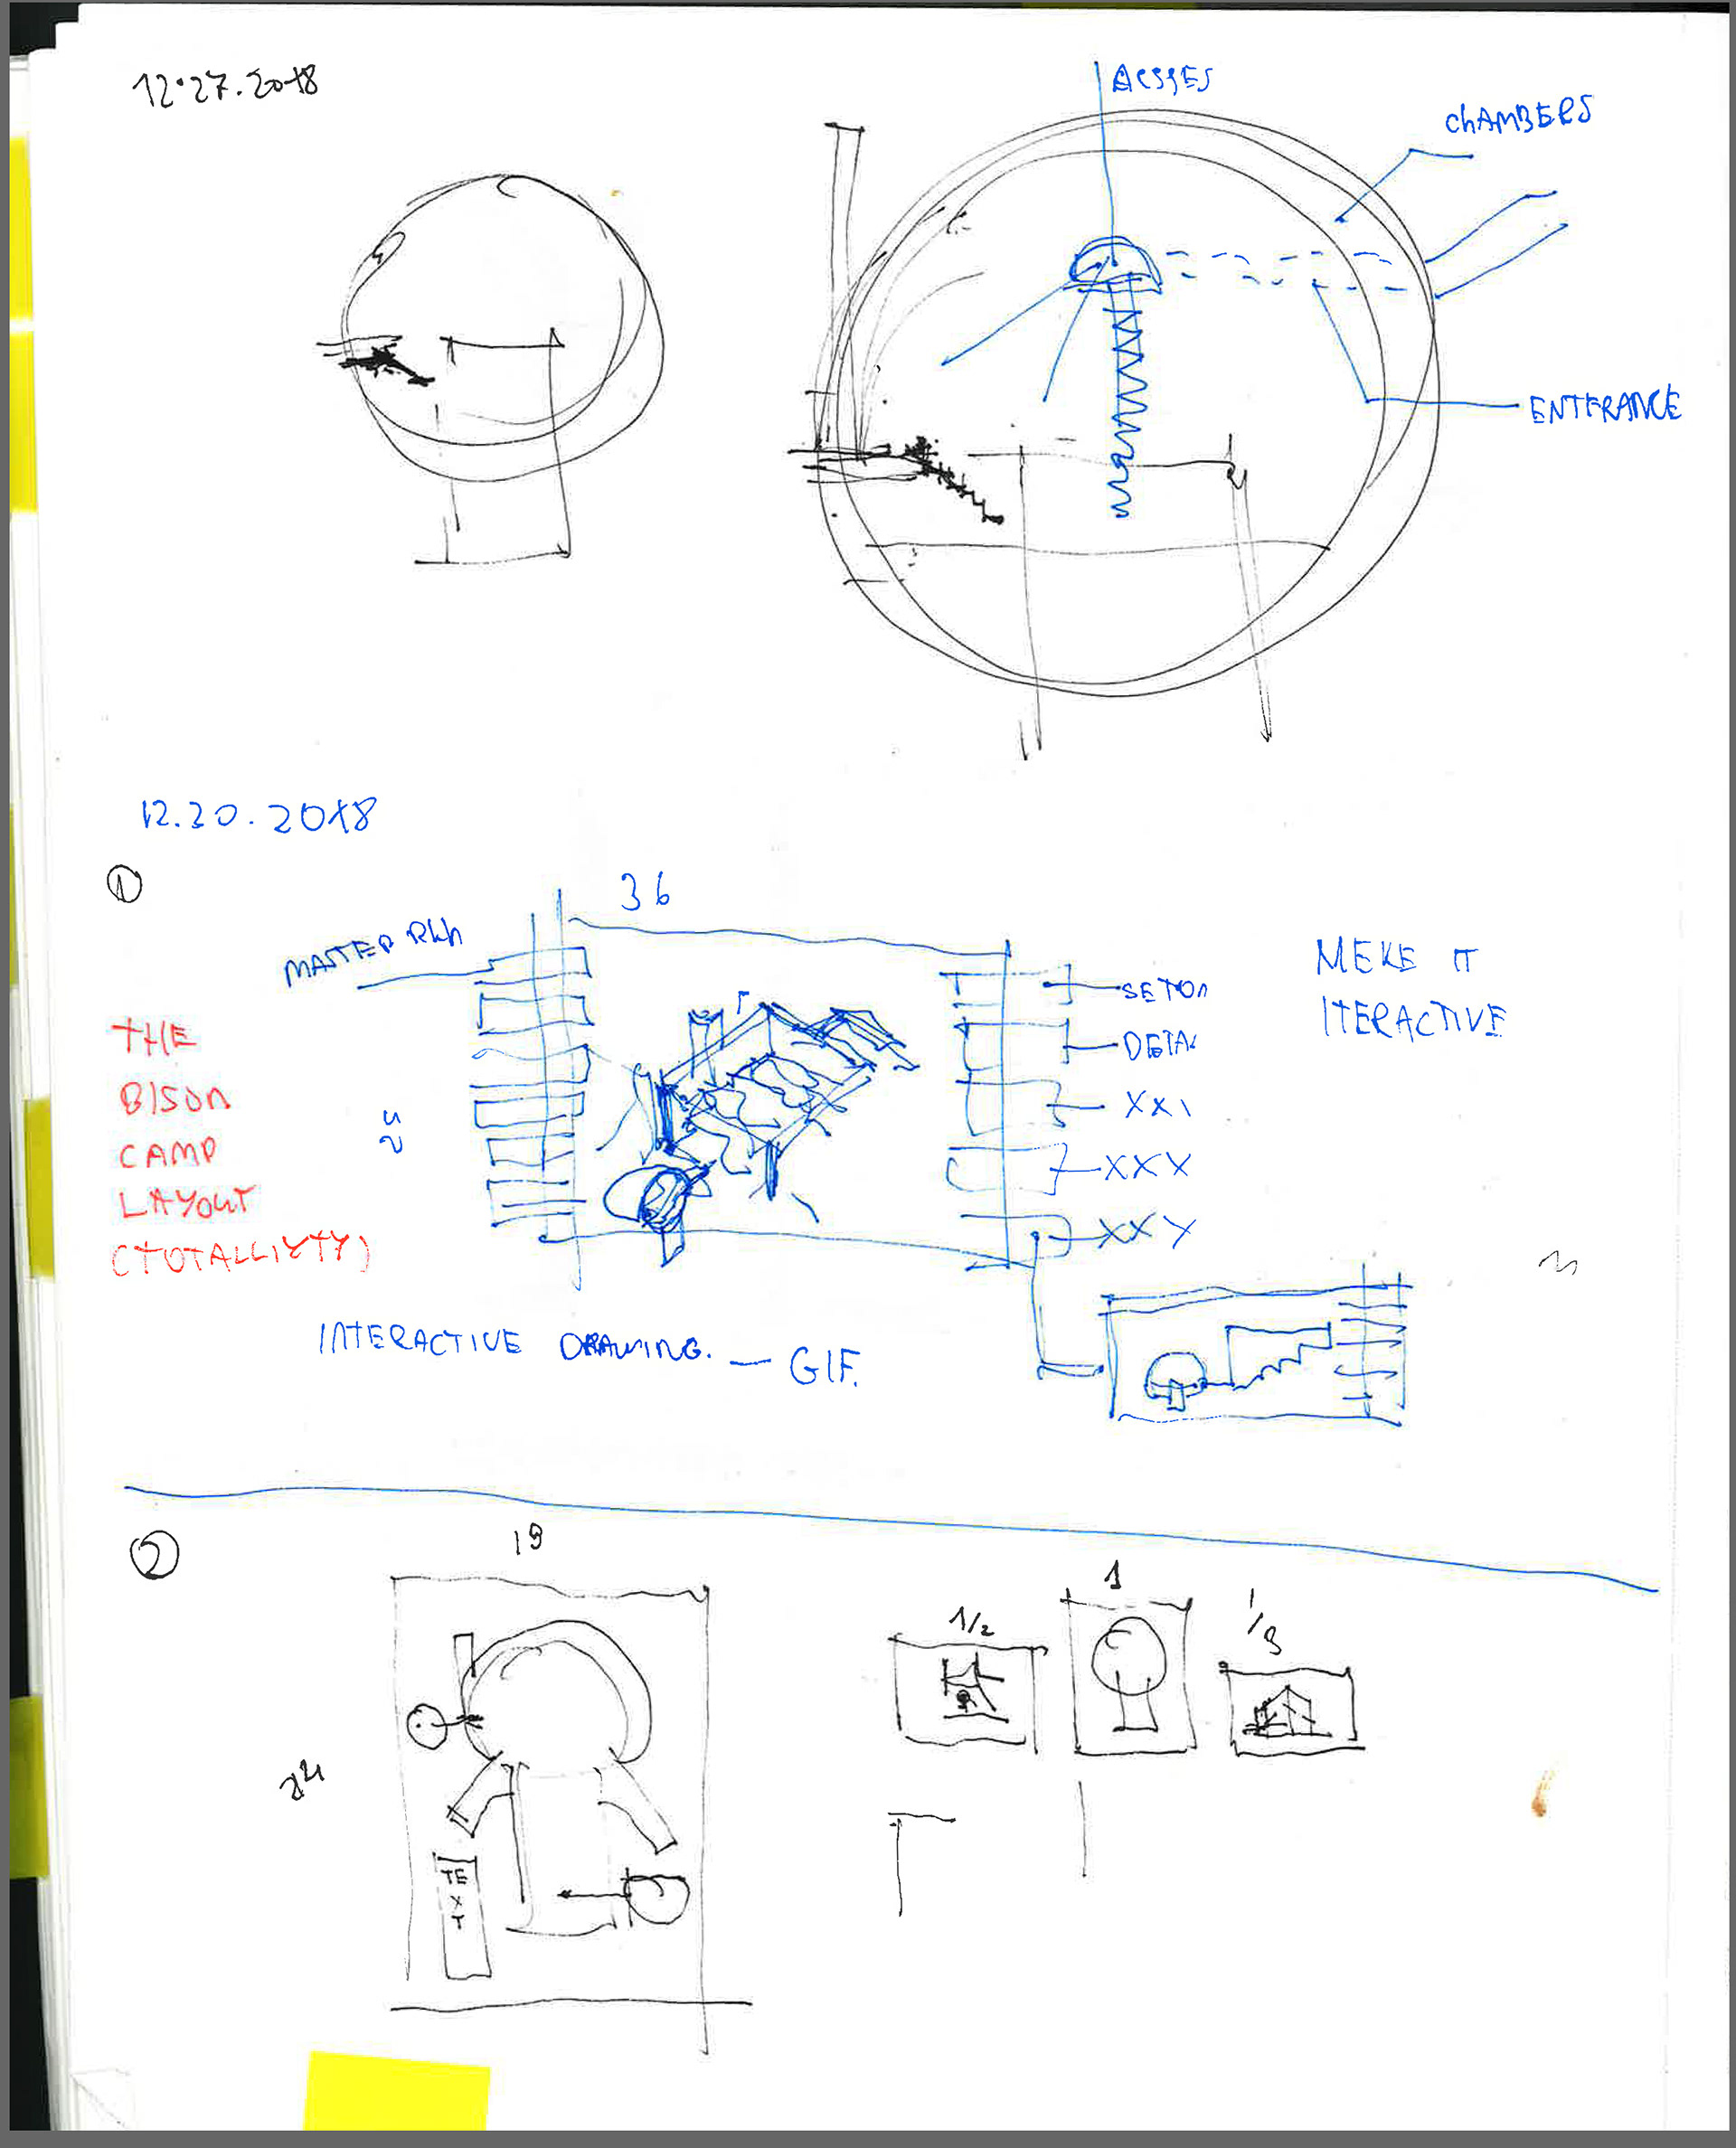 12.27.2018
ACSSES
chAMBERS
ENTERANCE
12.30.2018
1
36
MASTER PLAn
SETOn
DETAI
XXI
XXX
XXY
MEKE IT
ITERACTIVE
THE
BISON
CAMP
LAYOUT
(TOTALLIYTY)
24
INTERACTIVE DRAWING. — GIF.
2
18
24
TE
X
T
1/2
1